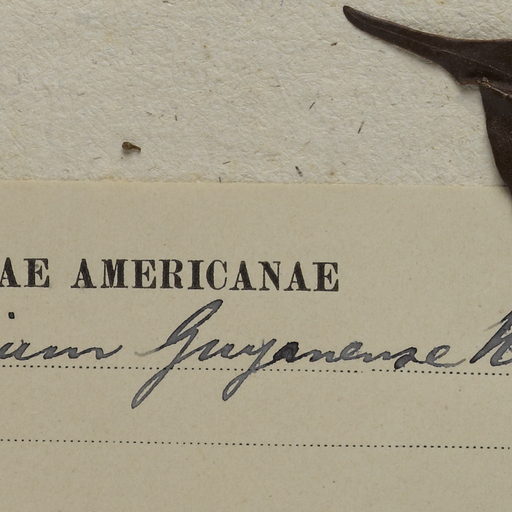 AE AMERICANAE
ium Guyanense